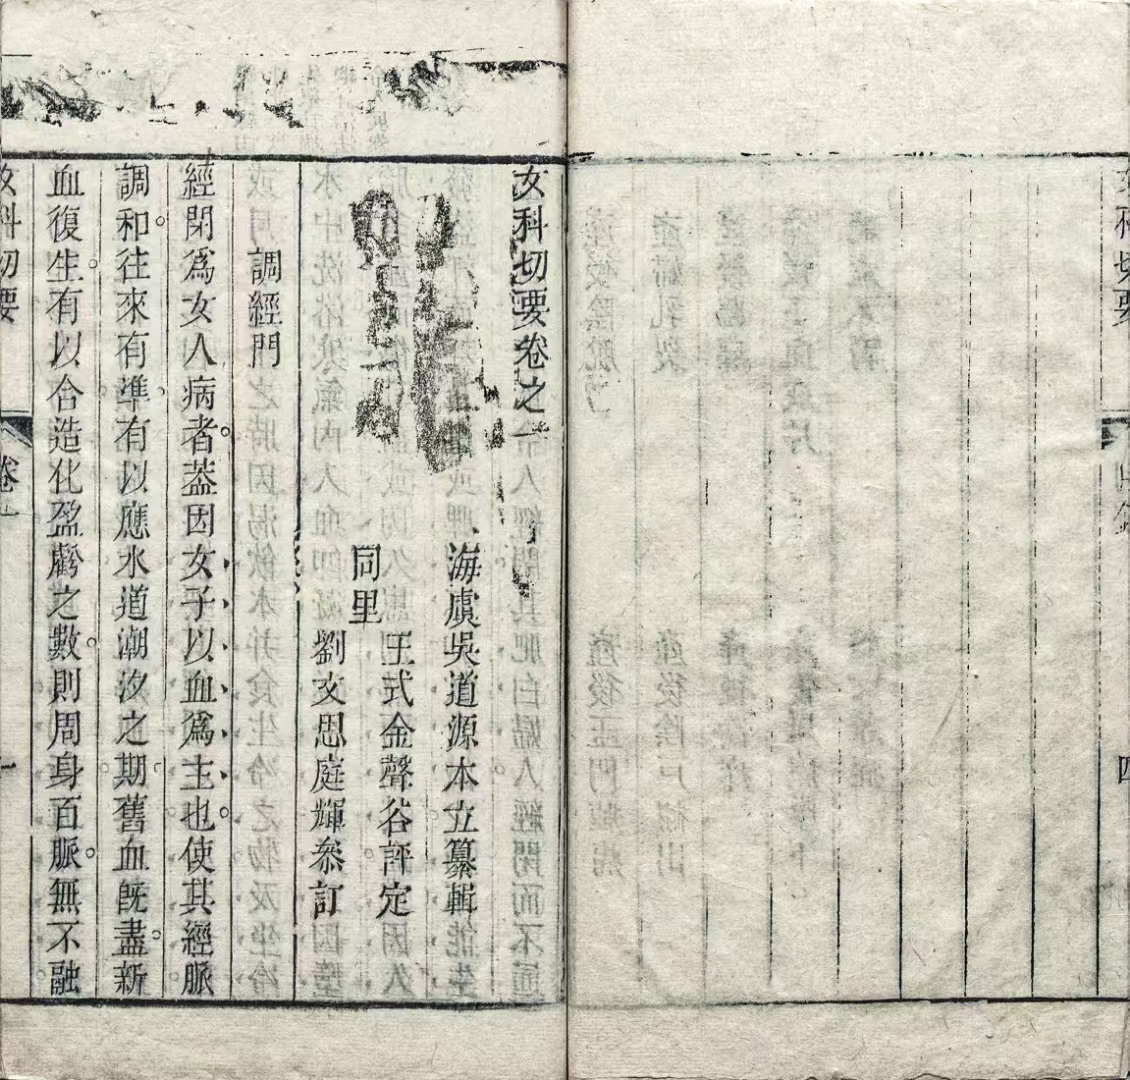 女科切要
四
女科切要卷之一
海虞吳道源本立纂輯
同里
王式金聲谷評定
劉攴思庭輝叅訂
調經門
經閉爲女人病者。葢因女子以血爲主也。使其經脈
調和。往來有準。有以應水道潮汐之期。舊血旣盡。新
血復生。有以合造化盈虧之數。則周身百脈。無不融
女科切要
卷一
一